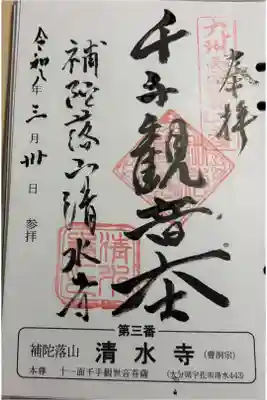 奉拝
千手観音大士
補陀落山清水寺
令和八年三月卅日 参拝
第三番
補陀落山 清水寺 (曹洞宗)
本尊 十一面千手観世音菩薩 (大分県宇佐市清水443)